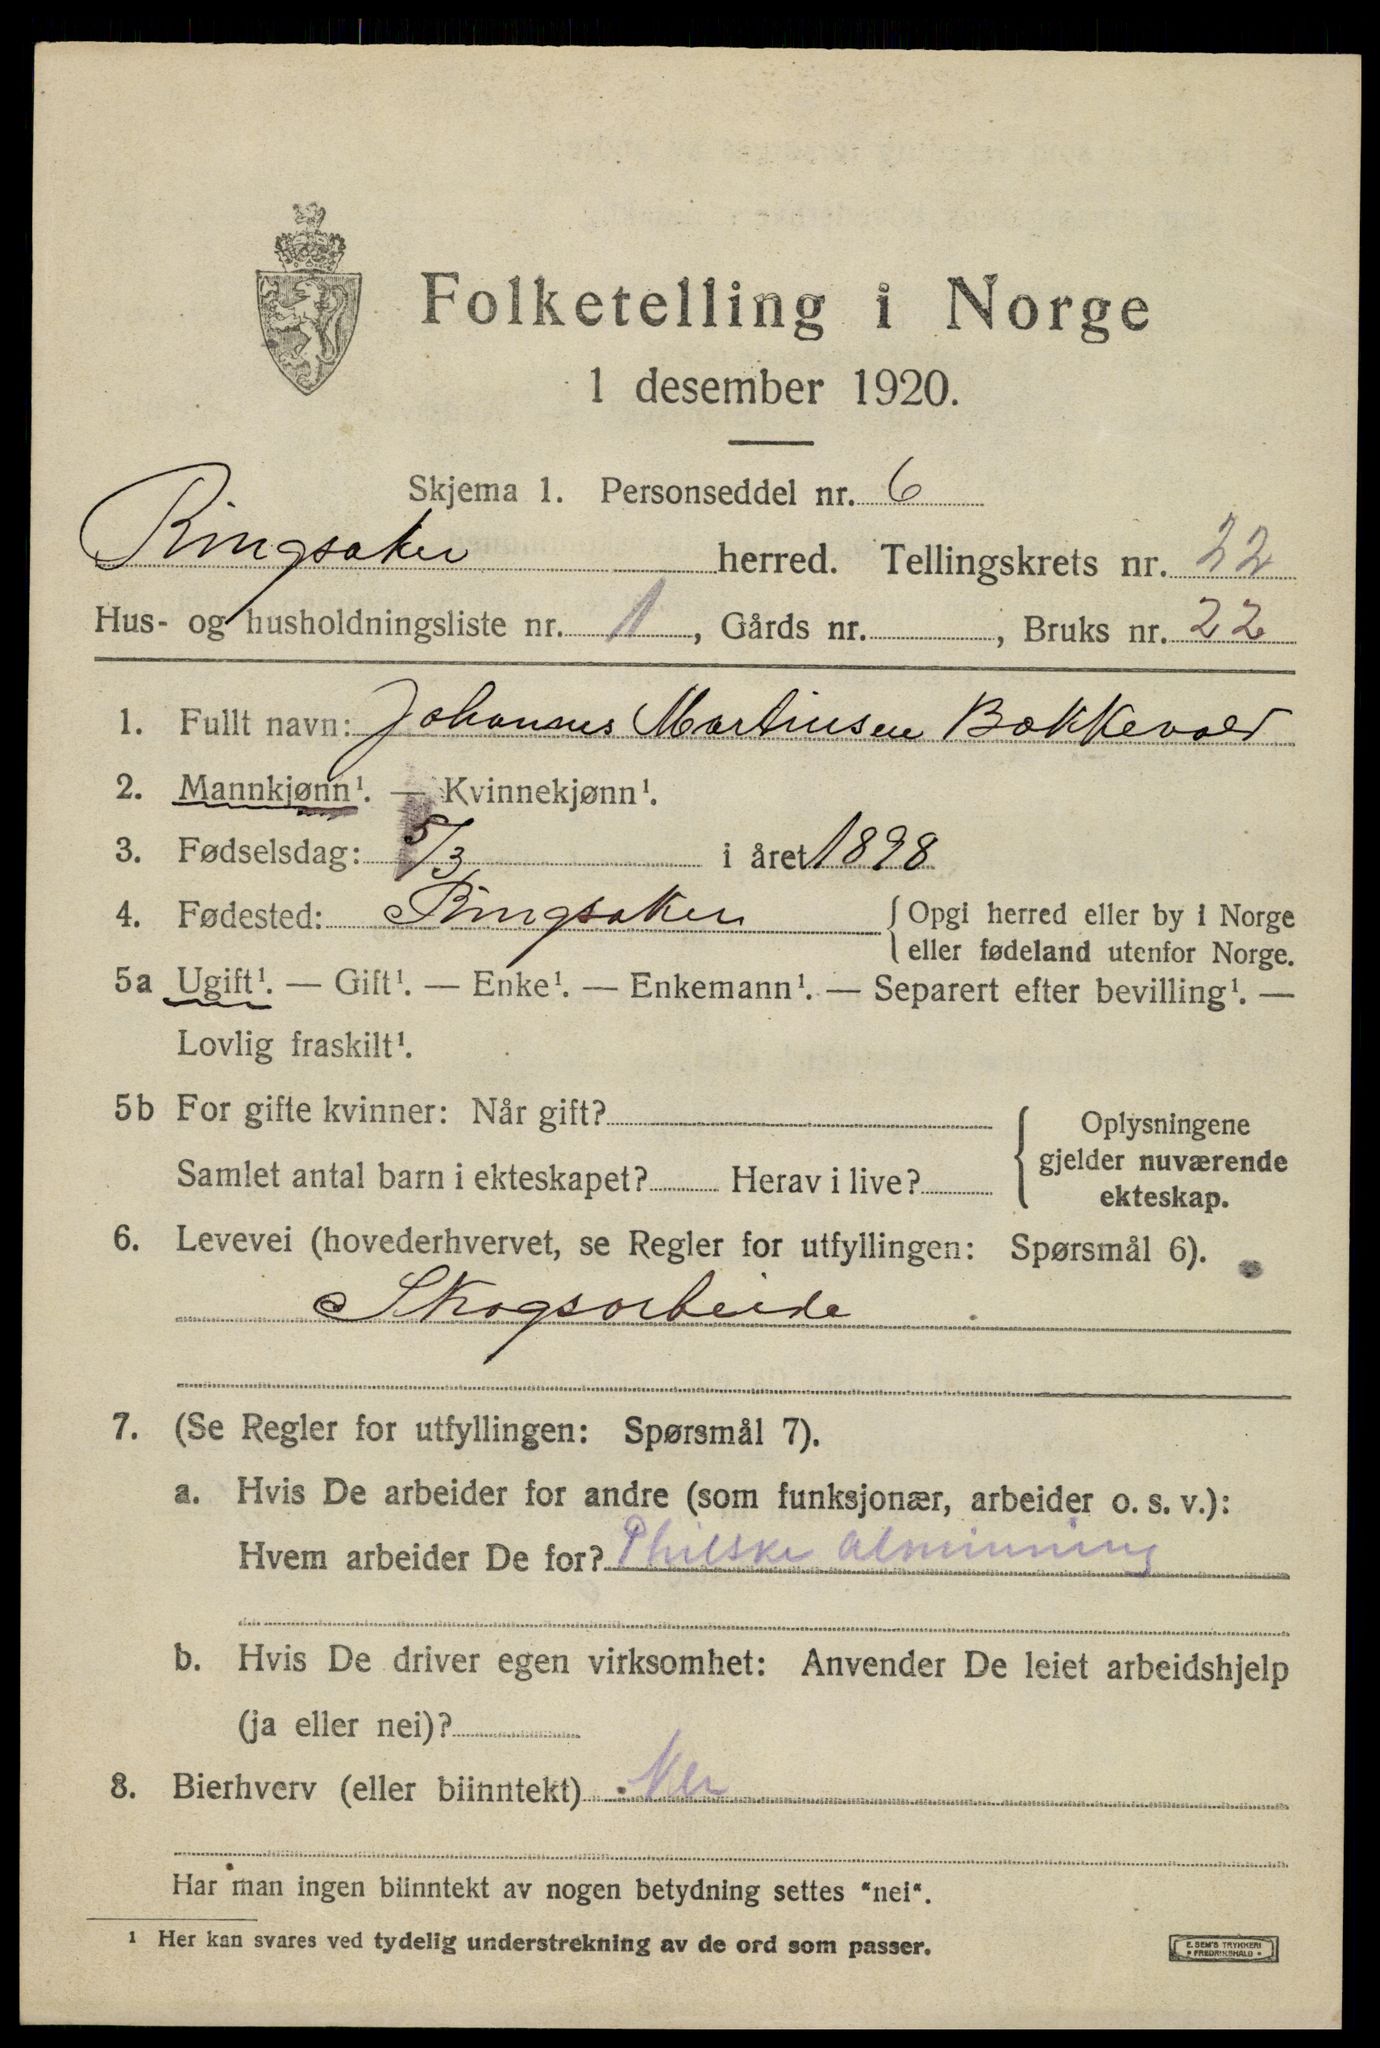 Folketelling i Norge
1 desember 1920.
Skjema 1. Personseddel nr. 6
Ringsaker herred. Tellingskrets nr. 22
Hus- og husholdningsliste nr. 1, Gårds nr. , Bruks nr. 22
1. Fullt navn: Johannes Martinsen Bakkevold
2. Mannkjønn¹. — Kvinnekjønn¹.
3. Fødselsdag: 5/3 i året 1898
4. Fødested: Ringsaker {Opgi herred eller by i Norge
eller fødeland utenfor Norge.
5a Ugift¹. — Gift¹. — Enke¹. — Enkemann¹. — Separert efter bevilling¹. —
Lovlig fraskilt¹.
5b For gifte kvinner: Når gift?
Samlet antal barn i ekteskapet? Herav i live?
Oplysningene
gjelder nuværende
ekteskap.
6. Levevei (hovederhvervet, se Regler for utfyllingen: Spørsmål 6).
Skogsarbeide
7. (Se Regler for utfyllingen: Spørsmål 7).
a. Hvis De arbeider for andre (som funksjonær, arbeider o. s. v.):
Hvem arbeider De for? Philske Alminning
b. Hvis De driver egen virksomhet: Anvender De leiet arbeidshjelp
(ja eller nei)?
8. Bierhverv (eller biinntekt) Nei
Har man ingen biinntekt av nogen betydning settes "nei".
¹ Her kan svares ved tydelig understrekning av de ord som passer.
E. SEM'S TRYKKERI
FREDRIKSHALD